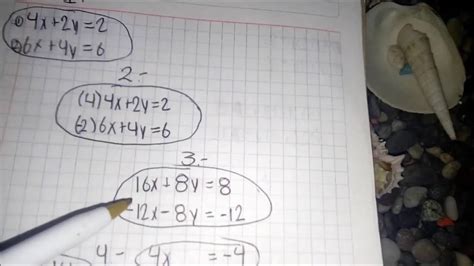 ① 4x+2y=2
② 6x+4y=6
2.-
(4) 4x+2y=2
(-2) 6x+4y=6
3.-
16x+8y=8
-12x-8y=-12
4- 4x =-4